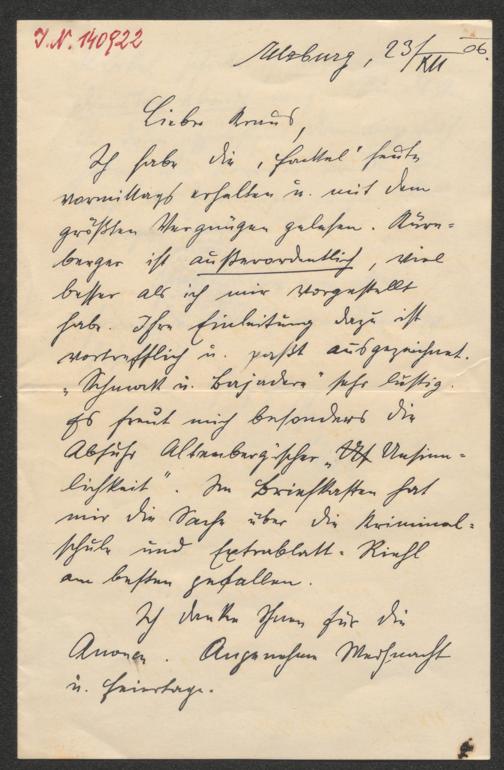 I. N. 140922
Salzburg, 23/XII 06.
Lieber Kraus,
Ich habe die ‚Fackel' heute
vormittags erhalten u. mit dem
größten Vergnügen gelesen. Kürn-
berger ist außerordentlich, viel
besser als ich mir vorgestellt
habe. Ihre Einleitung dazu ist
vortrefflich u. paßt ausgezeichnet.
„Schmock u. Bajadere" sehr lustig.
Es freut mich besonders die
Abfuhr Altenberg'scher „Unsinn-
lichkeit". Im Briefkasten hat
mir die Sache über die Kriminal-
schule und Extrablatt-Riehl
am besten gefallen.
Ich danke Ihnen für die
Anoncen. Angenehme Weihnacht
u. Feiertage.